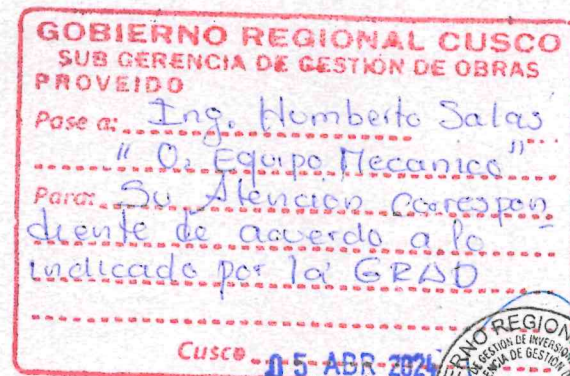 GOBIERNO REGIONAL CUSCO
SUB GERENCIA DE GESTIÓN DE OBRAS
PROVEIDO
Pase a: Ing. Humberto Salas
"O. Equipo Mecanico"
Para: Su Atencion Correspon
diente de acuerdo a lo
indicado por la GRAD
Cusco 05 ABR 2024